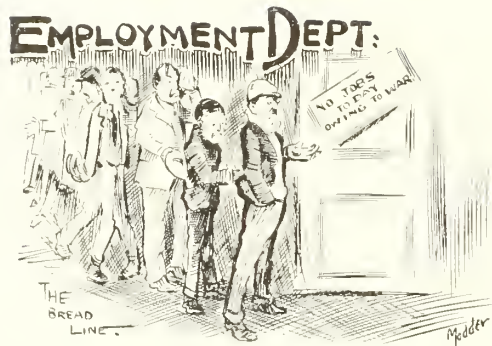 EMPLOYMENT DEPT:
NO JOBS
TO DAY
OWING TO WAR
THE
BREAD
LINE.
Modder